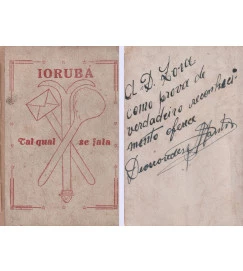 IORUBÁ
Tal qual se fala
A D. Zora
como prova de
verdadeiro reconheci-
mento oferece